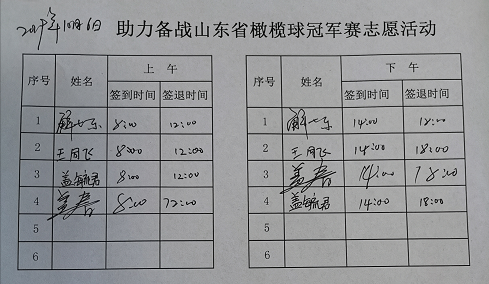 助力备战山东省橄榄球冠军赛志愿活动
序号 姓名 上午 序号 姓名 下午
签到时间 签退时间 签到时间 签退时间
1 8:00 12:00 1 14:00 18:00
2 王同飞 8:00 12:00 2 王同飞 14:00 18:00
3 盖毓君 8:00 12:00 3 盖春 14:00 18:00
4 盖春 8:00 12:00 4 盖毓君 14:00 18:00
5 5
6 6